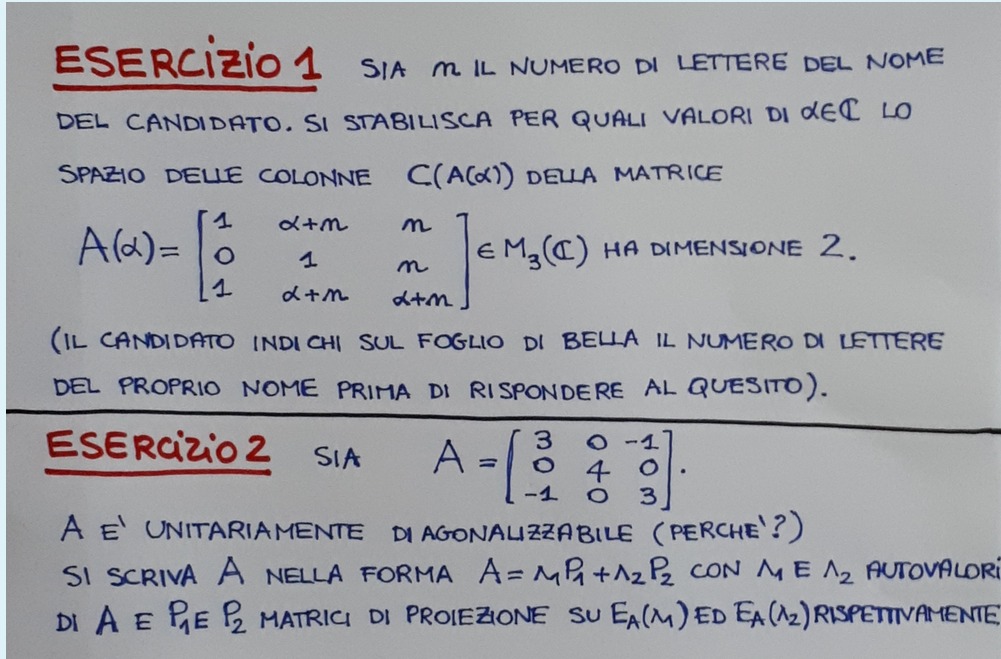 ESERCIZIO 1 SIA n IL NUMERO DI LETTERE DEL NOME
DEL CANDIDATO. SI STABILISCA PER QUALI VALORI DI α∈ℂ LO
SPAZIO DELLE COLONNE C(A(α)) DELLA MATRICE
A(α)= [1 α+n n; 0 1 n; 1 α+n α+n] ∈ M₃(ℂ) HA DIMENSIONE 2.
(IL CANDIDATO INDICHI SUL FOGLIO DI BELLA IL NUMERO DI LETTERE
DEL PROPRIO NOME PRIMA DI RISPONDERE AL QUESITO).
ESERCIZIO 2 SIA A = [3 0 -1; 0 4 0; -1 0 3].
A E' UNITARIAMENTE DIAGONALIZZABILE (PERCHE'?)
SI SCRIVA A NELLA FORMA A=λ₁P₁+λ₂P₂ CON λ₁ E λ₂ AUTOVALORI
DI A E P₁ E P₂ MATRICI DI PROIEZIONE SU E_A(λ₁) ED E_A(λ₂) RISPETTIVAMENTE